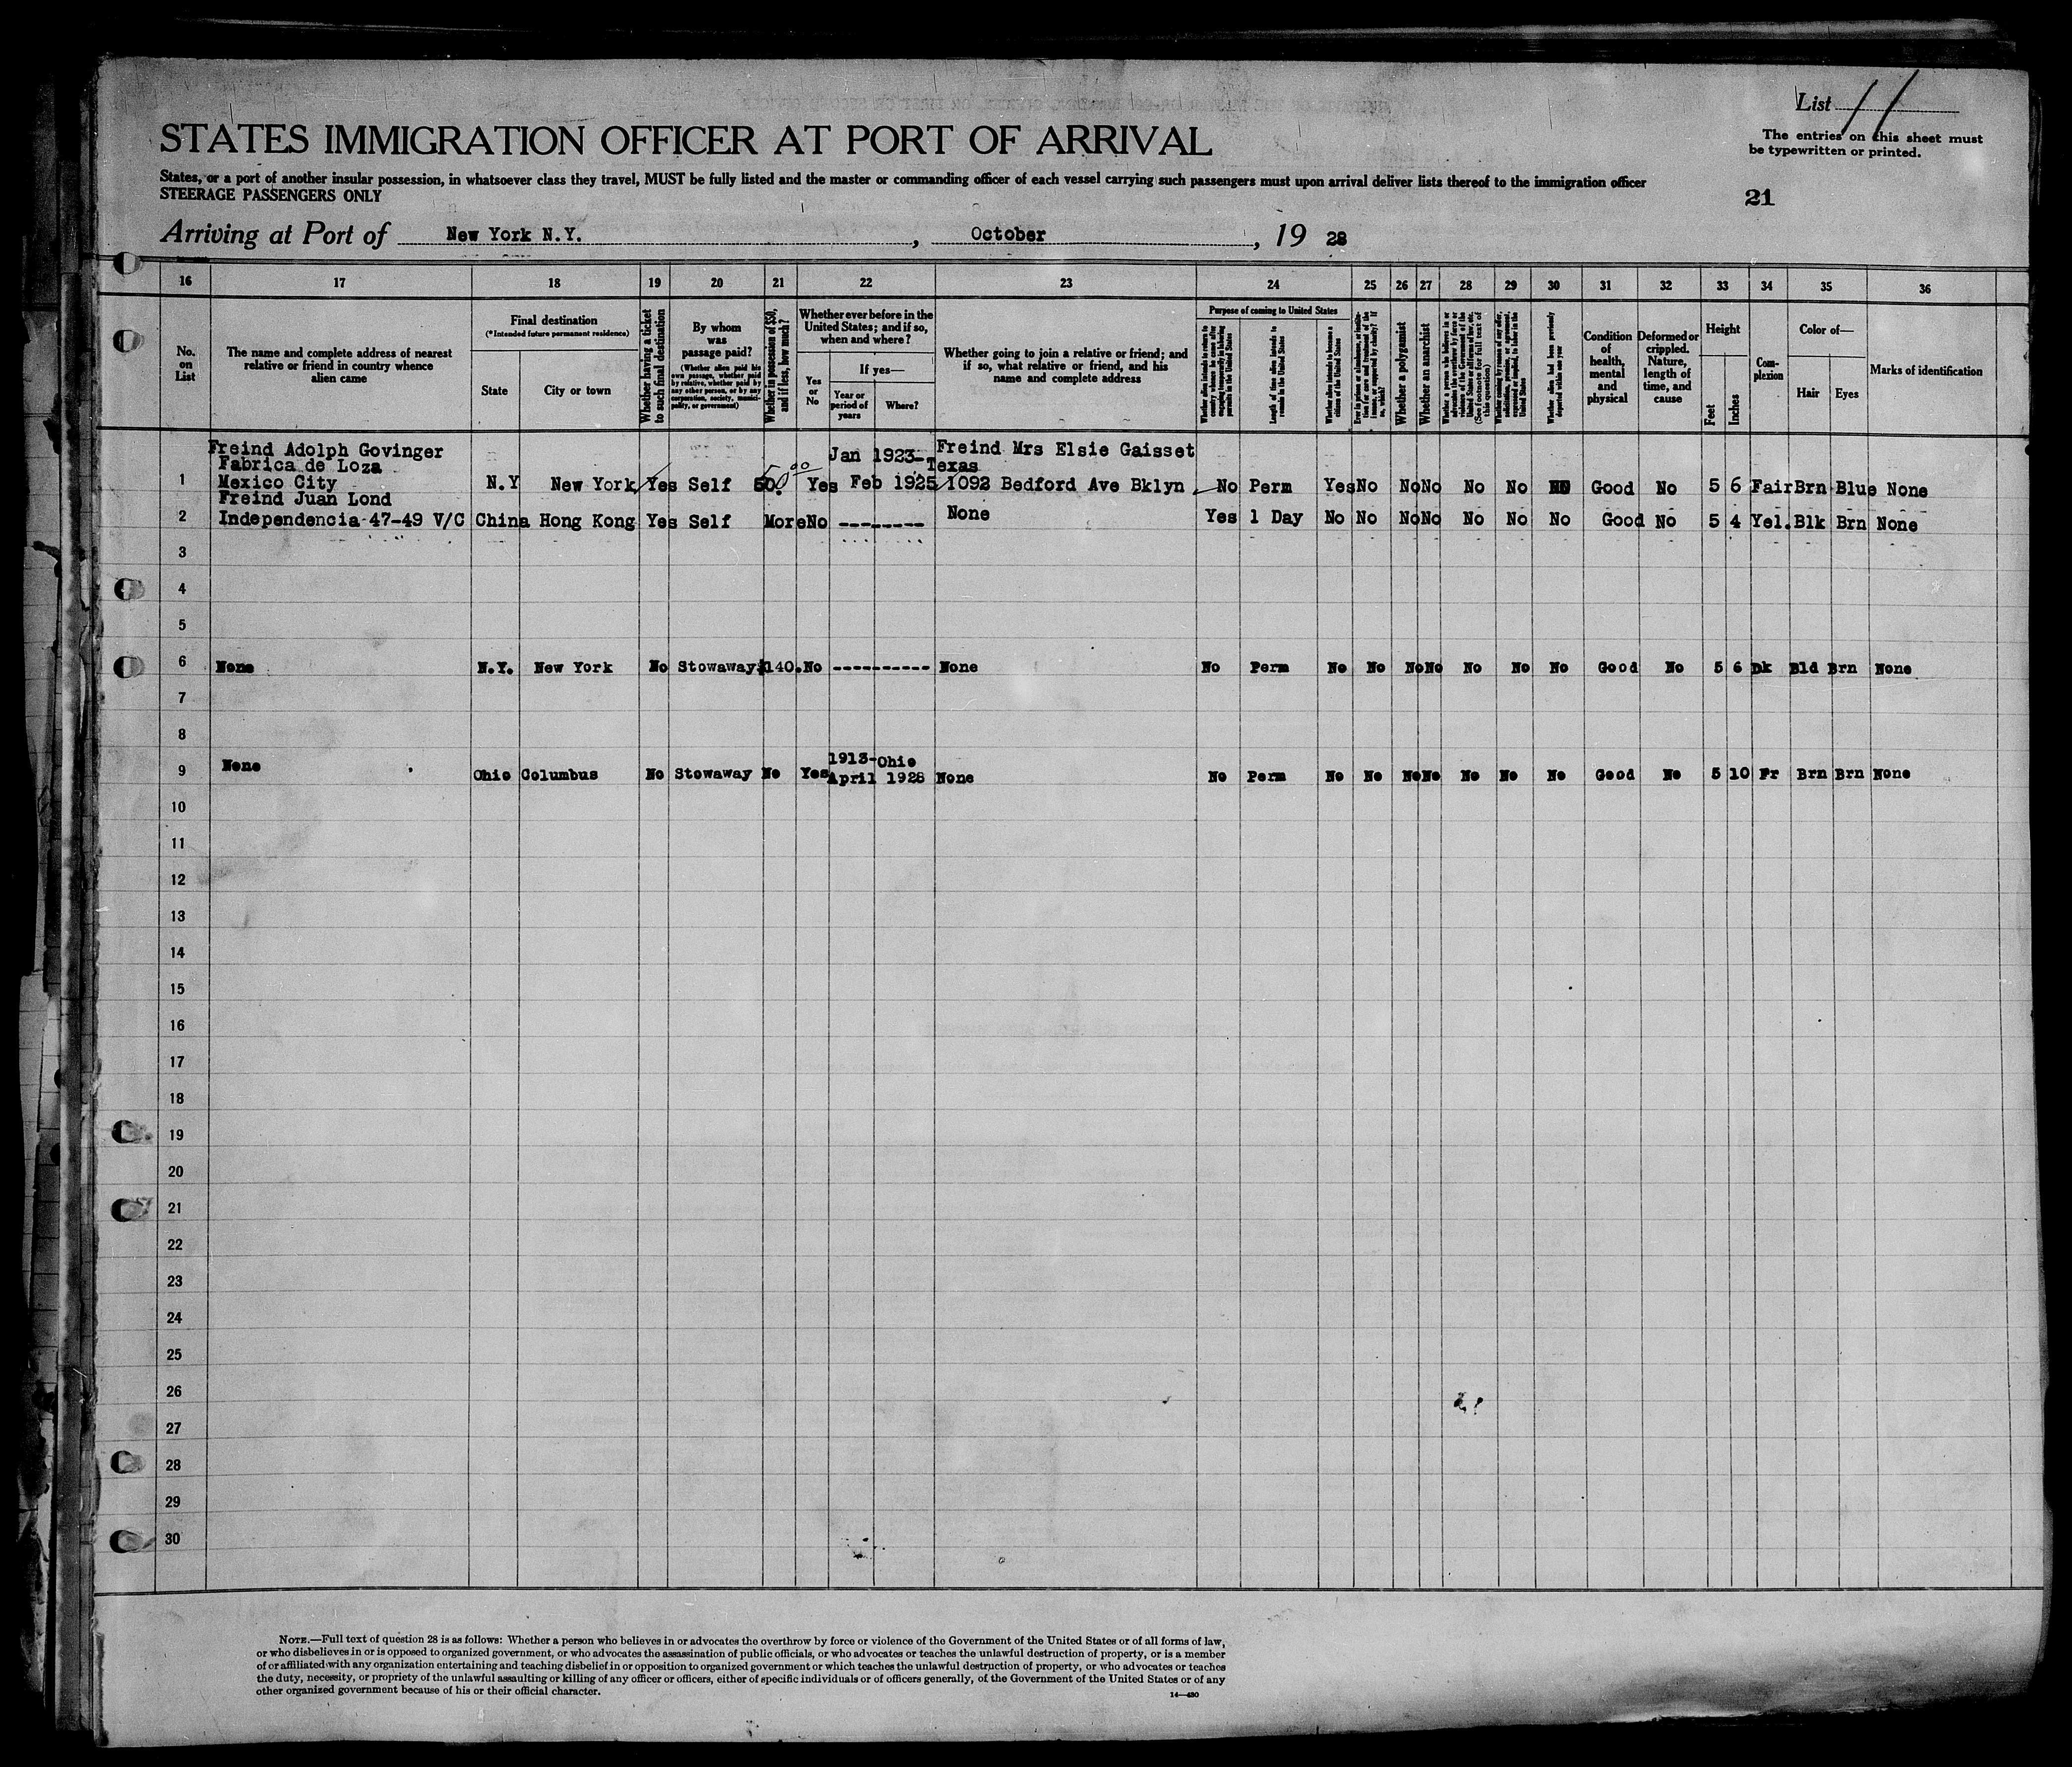 List 11
The entries on this sheet must
be typewritten or printed.
STATES IMMIGRATION OFFICER AT PORT OF ARRIVAL
States, or a port of another insular possession, in whatsoever class they travel, MUST be fully listed and the master or commanding officer of each vessel carrying such passengers must upon arrival deliver lists thereof to the immigration officer
STEERAGE PASSENGERS ONLY
21
Arriving at Port of New York N.Y. , October , 19 28
16 17 18 19 20 21 22 23 24 25 26 27 28 29 30 31 32 33 34 35 36
No.
on
List
The name and complete address of nearest
relative or friend in country whence
alien came
Final destination
(*Intended future permanent residence)
State
City or town
Whether having a ticket
to such final destination
By whom
was
passage paid?
(Whether alien paid his
own passage, whether paid
by relative, whether paid by
any other person, or by any
corporation, society, munici-
pality, or government)
Whether in possession of $50,
and if less, how much?
Whether ever before in the
United States; and if so,
when and where?
Yes
or
No
If yes—
Year or
period of
years
Where?
Whether going to join a relative or friend; and
if so, what relative or friend, and his
name and complete address
Purpose of coming to United States
Whether alien intends to return to
country whence he came after
engaging temporarily in laboring
pursuits in the United States
Length of time alien intends to
remain in the United States
Whether alien intends to become a
citizen of the United States
Whether a polygamist
Whether an anarchist
Whether alien had been previously
deported within one year
Condition
of
health,
mental
and
physical
Deformed or
crippled.
Nature,
length of
time, and
cause
Height
Feet
Inches
Com-
plexion
Color of—
Hair
Eyes
Marks of identification
Freind Adolph Govinger
Fabrica de Loza
Jan 1923-Texas
Freind Mrs Elsie Gaisset
1 Mexico City N.Y New York Yes Self 50. 50 00 Yes Feb 1925 1092 Bedford Ave Bklyn No Perm Yes No No No No No NO Good No 5 6 Fair Brn Blue None
Freind Juan Lond
2 Independencia 47-49 V/C China Hong Kong Yes Self More No -------- None Yes 1 Day No No No No No No No Good No 5 4 Yel. Blk Brn None
3
4
5
6 None N.Y. New York No Stowaway $140. No ---------- None No Perm No No No No No No No Good No 5 6 Dk Bld Brn None
7
8
1913-Ohio
9 None Ohio Columbus No Stowaway No Yes April 1928 None No Perm No No No No No No No Good No 5 10 Fr Brn Brn None
10
11
12
13
14
15
16
17
18
19
20
21
22
23
24
25
26
27
28
29
30
NOTE.—Full text of question 28 is as follows: Whether a person who believes in or advocates the overthrow by force or violence of the Government of the United States or of all forms of law,
or who disbelieves in or is opposed to organized government, or who advocates the assassination of public officials, or who advocates or teaches the unlawful destruction of property, or is a member
of or affiliated with any organization entertaining and teaching disbelief in or opposition to organized government or which teaches the unlawful destruction of property, or who advocates or teaches
the duty, necessity, or propriety of the unlawful assaulting or killing of any officer or officers, either of specific individuals or of officers generally, of the Government of the United States or of any
other organized government because of his or their official character.
14—430